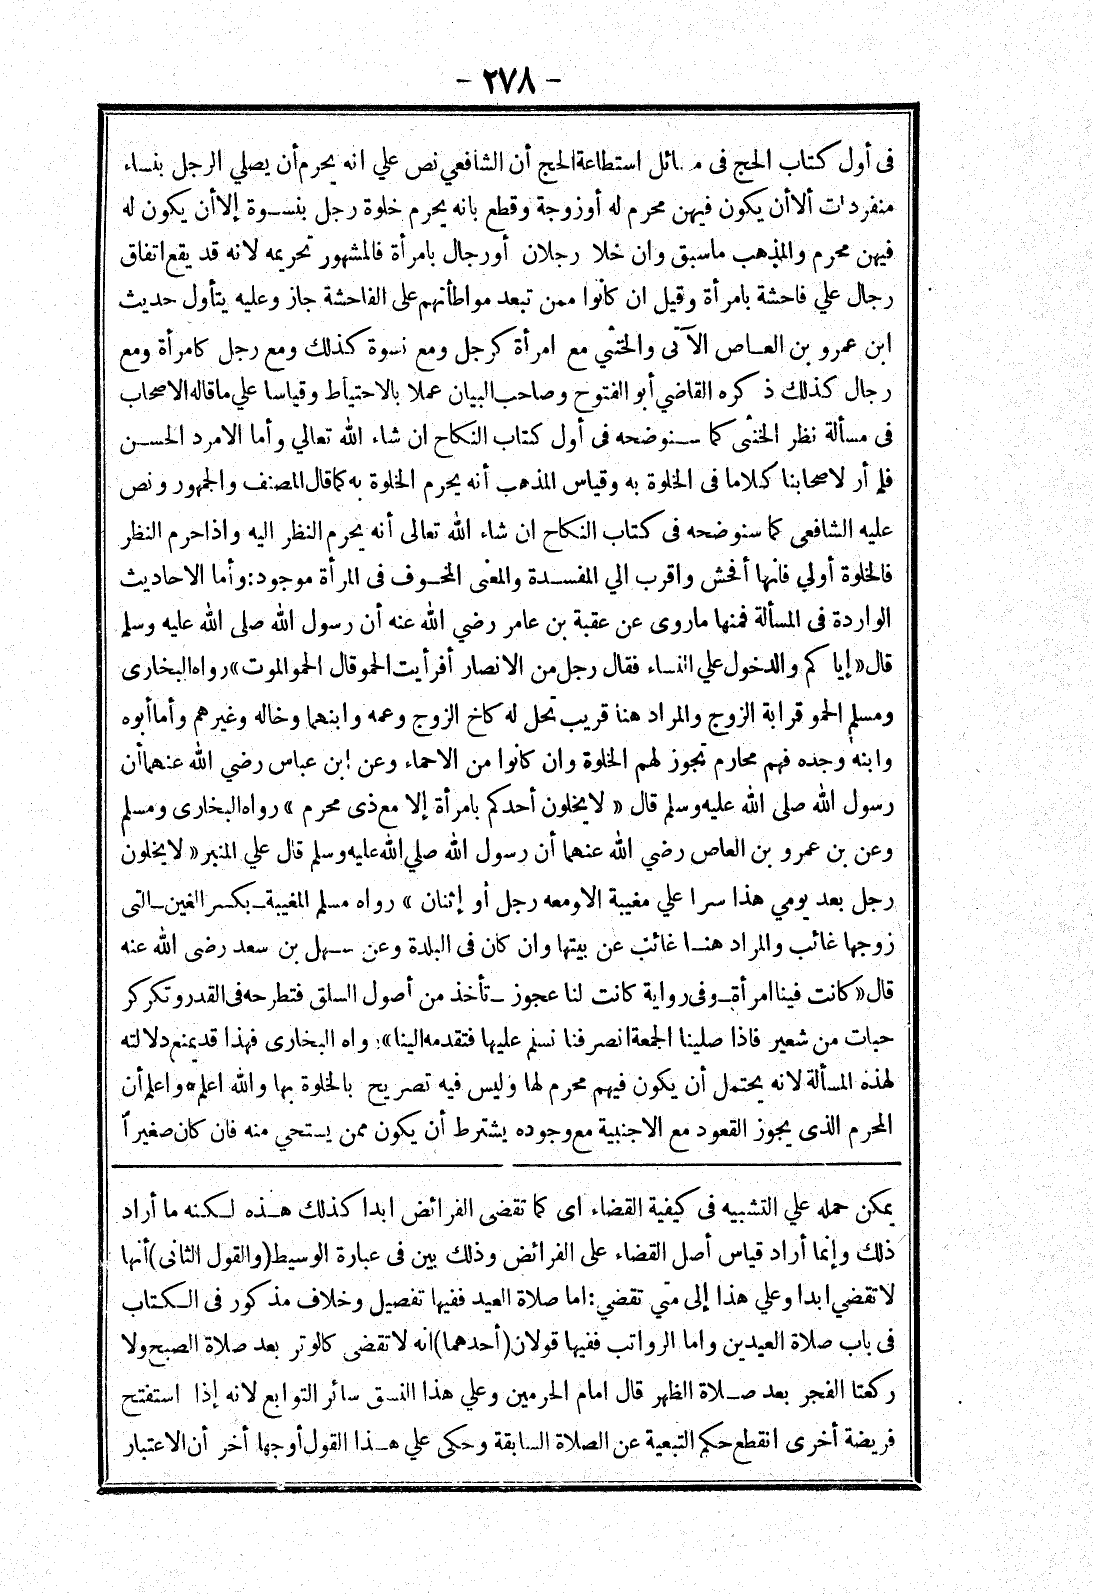 - ٢٧٨ -
فى أول كتاب الحج فى مسائل استطاعة الحج أن الشافعي نص علي انه يحرم أن يصلي الرجل بنساء
منفردات ألاأن يكون فيهن محرم له أوزوجة وقطع بانه يحرم خلوة رجل بنسوة إلاأن يكون له
فيهن محرم والمذهب ماسبق وان خلا رجلان أورجال بامرأة فالمشهور تحريمه لانه قد يقع اتفاق
رجال علي فاحشة بامرأة وقيل ان كانوا ممن تبعد مواطأتهم على الفاحشة جاز وعليه يتأول حديث
ابن عمرو بن العاص الآتى والخنثي مع امرأة كرجل ومع نسوة كذلك ومع رجل كامرأة ومع
رجال كذلك ذكره القاضي أبو الفتوح وصاحب البيان عملا بالاحتياط وقياسا علي ماقاله الاصحاب
فى مسألة نظر الخنثى كما سنوضحه فى أول كتاب النكاح ان شاء الله تعالي وأما الامرد الحسن
فلم أر لاصحابنا كلاما فى الخلوة به وقياس المذهب أنه يحرم الخلوة به كما قال المصنف والجمهور ونص
عليه الشافعى كما سنوضحه فى كتاب النكاح ان شاء الله تعالى أنه يحرم النظر اليه واذاحرم النظر
فالخلوة أولي فانها أفحش واقرب الي المفسدة والمعنى المخوف فى المرأة موجود: وأما الاحاديث
الواردة فى المسألة فمنها ماروى عن عقبة بن عامر رضي الله عنه أن رسول الله صلى الله عليه وسلم
قال «إياكم والدخول علي النساء فقال رجل من الانصار أفرأيت الحمو قال الحمو الموت» رواه البخارى
ومسلم الحمو قرابة الزوج والمراد هنا قريب تحل له كاخ الزوج وعمه وابنهما وخاله وغيرهم وأما أبوه
وابنه وجده فهم محارم تجوز لهم الخلوة وان كانوا من الاحماء وعن ابن عباس رضي الله عنهما أن
رسول الله صلى الله عليه وسلم قال « لا يخلون أحدكم بامرأة إلا مع ذى محرم » رواه البخارى ومسلم
وعن بن عمرو بن العاص رضي الله عنهما أن رسول الله صلي الله عليه وسلم قال علي المنبر « لا يخلون
رجل بعد يومي هذا سرا علي مغيبة الاومعه رجل أو إثنان » رواه مسلم المغيبة ـ بكسر الغين ـ التى
زوجها غائب والمراد هنا غائب عن بيتها وان كان فى البلدة وعن سهل بن سعد رضى الله عنه
قال «كانت فينا امرأة ـ وفى رواية كانت لنا عجوز ـ تأخذ من أصول السلق فتطرحه فى القدر وتكركر
حبات من شعير فاذا صلينا الجمعة انصرفنا نسلم عليها فتقدمه الينا» رواه البخارى فهذا قد يمنع دلالته
لهذه المسألة لانه يحتمل أن يكون فيهم محرم لها وليس فيه تصريح بالخلوة بها والله اعلم * واعلم أن
المحرم الذى يجوز القعود مع الاجنبية مع وجوده يشترط أن يكون ممن يستحي منه فان كان صغيراً
يمكن حمله علي التشبيه فى كيفية القضاء اى كما تقضى الفرائض ابدا كذلك هذه لكنه ما أراد
ذلك وإنما أراد قياس أصل القضاء على الفرائض وذلك بين فى عبارة الوسيط (والقول الثانى) أنها
لا تقضي ابدا وعلي هذا إلى متي تقضي: اما صلاة العيد ففيها تفصيل وخلاف مذكور فى الكتاب
فى باب صلاة العيدين واما الرواتب ففيها قولان (أحدهما) انه لا تقضى كالوتر بعد صلاة الصبح ولا
ركعتا الفجر بعد صلاة الظهر قال امام الحرمين وعلي هذا النسق سائر التوابع لانه إذا استفتح
فريضة أخرى انقطع حكم التبعية عن الصلاة السابقة وحكى علي هذا القول أوجها أخر أن الاعتبار